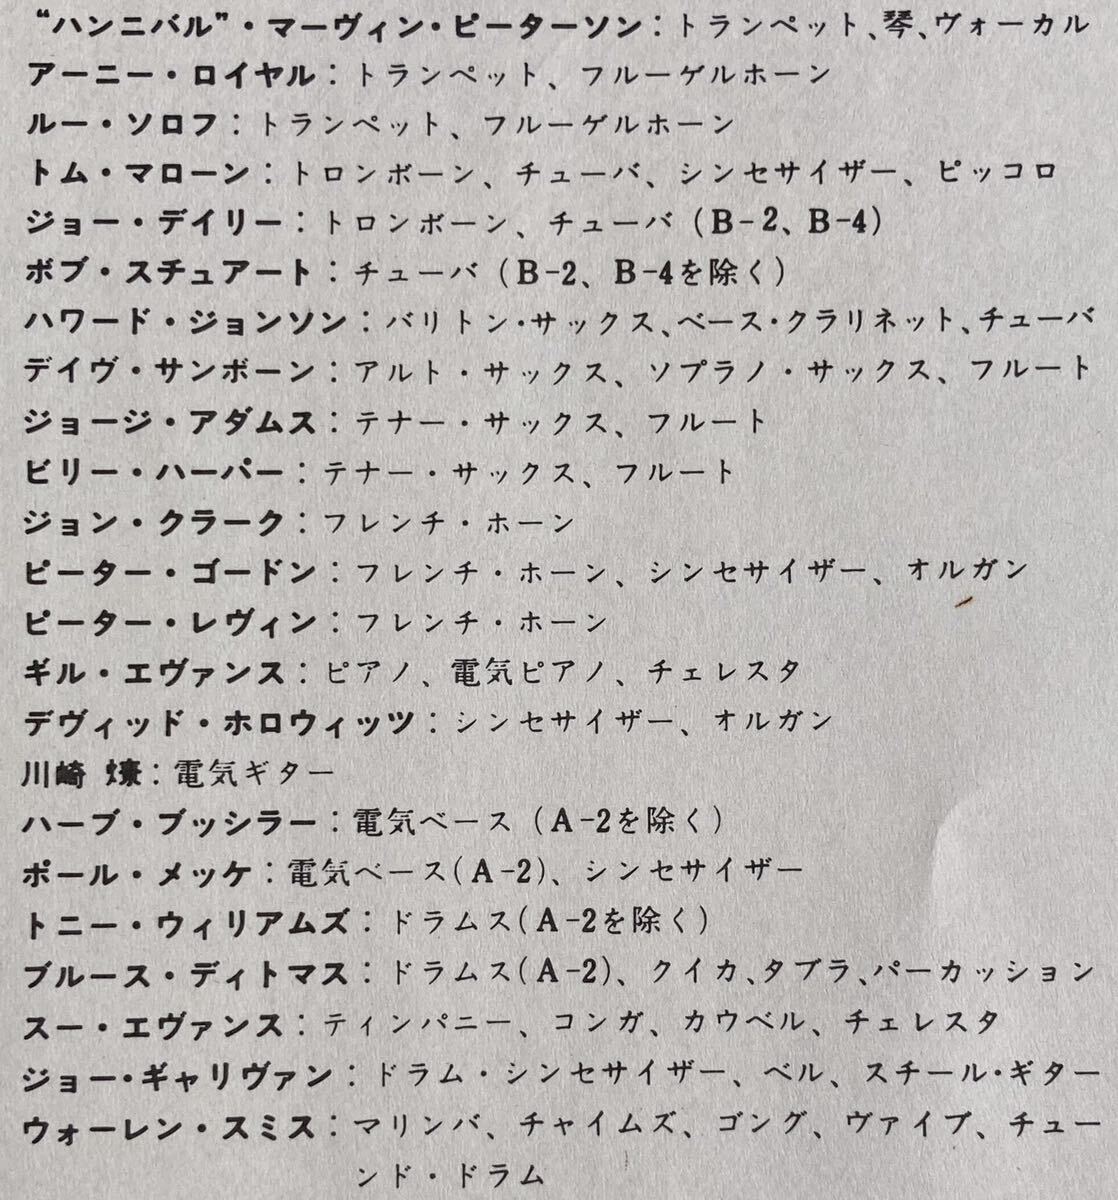 “ハンニバル”・マーヴィン・ピーターソン：トランペット、琴、ヴォーカル
アーニー・ロイヤル：トランペット、フルーゲルホーン
ルー・ソロフ：トランペット、フルーゲルホーン
トム・マローン：トロンボーン、チューバ、シンセサイザー、ピッコロ
ジョー・デイリー：トロンボーン、チューバ（B-2、B-4）
ボブ・スチュアート：チューバ（B-2、B-4を除く）
ハワード・ジョンソン：バリトン・サックス、ベース・クラリネット、チューバ
デイヴ・サンボーン：アルト・サックス、ソプラノ・サックス、フルート
ジョージ・アダムス：テナー・サックス、フルート
ビリー・ハーパー：テナー・サックス、フルート
ジョン・クラーク：フレンチ・ホーン
ピーター・ゴードン：フレンチ・ホーン、シンセサイザー、オルガン
ピーター・レヴィン：フレンチ・ホーン
ギル・エヴァンス：ピアノ、電気ピアノ、チェレスタ
デヴィッド・ホロウィッツ：シンセサイザー、オルガン
川崎 燎：電気ギター
ハーブ・ブッシラー：電気ベース（A-2を除く）
ポール・メッケ：電気ベース(A-2)、シンセサイザー
トニー・ウィリアムズ：ドラムス(A-2を除く)
ブルース・ディトマス：ドラムス(A-2)、クイカ、タブラ、パーカッション
スー・エヴァンス：ティンパニー、コンガ、カウベル、チェレスタ
ジョー・ギャリヴァン：ドラム・シンセサイザー、ベル、スチール・ギター
ウォーレン・スミス：マリンバ、チャイムズ、ゴング、ヴァイブ、チュー
ンド・ドラム